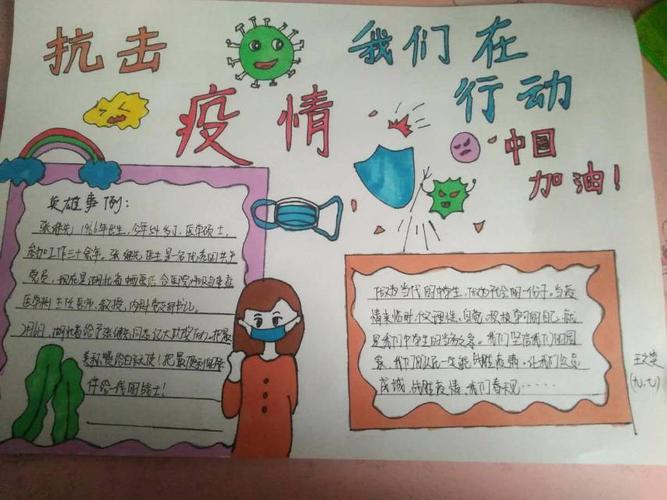 抗击
疫情
我们在
行动
中国
加油！
英雄事例：
张继先 1966年出生，今年54岁了，医学硕士，
参加工作三十余年。张继先医生是一名优秀的共产
党员，现任湖北省中西医结合医院呼吸与重症
医学科主任医师、教授，内科党支部书记。
2月6日，湖北省给予张继先同志记大功奖励，把最
美祝愿给白衣天使！把最
伟给一线的战士！
做为当代的中学生，做为社会的一份子，当疫
情来临时，
是我们中学生的当务之急。我们坚信我们的国
家，我们的人民一定能战胜疫情，让我们众志
成城，战胜疫情，我们春天见……